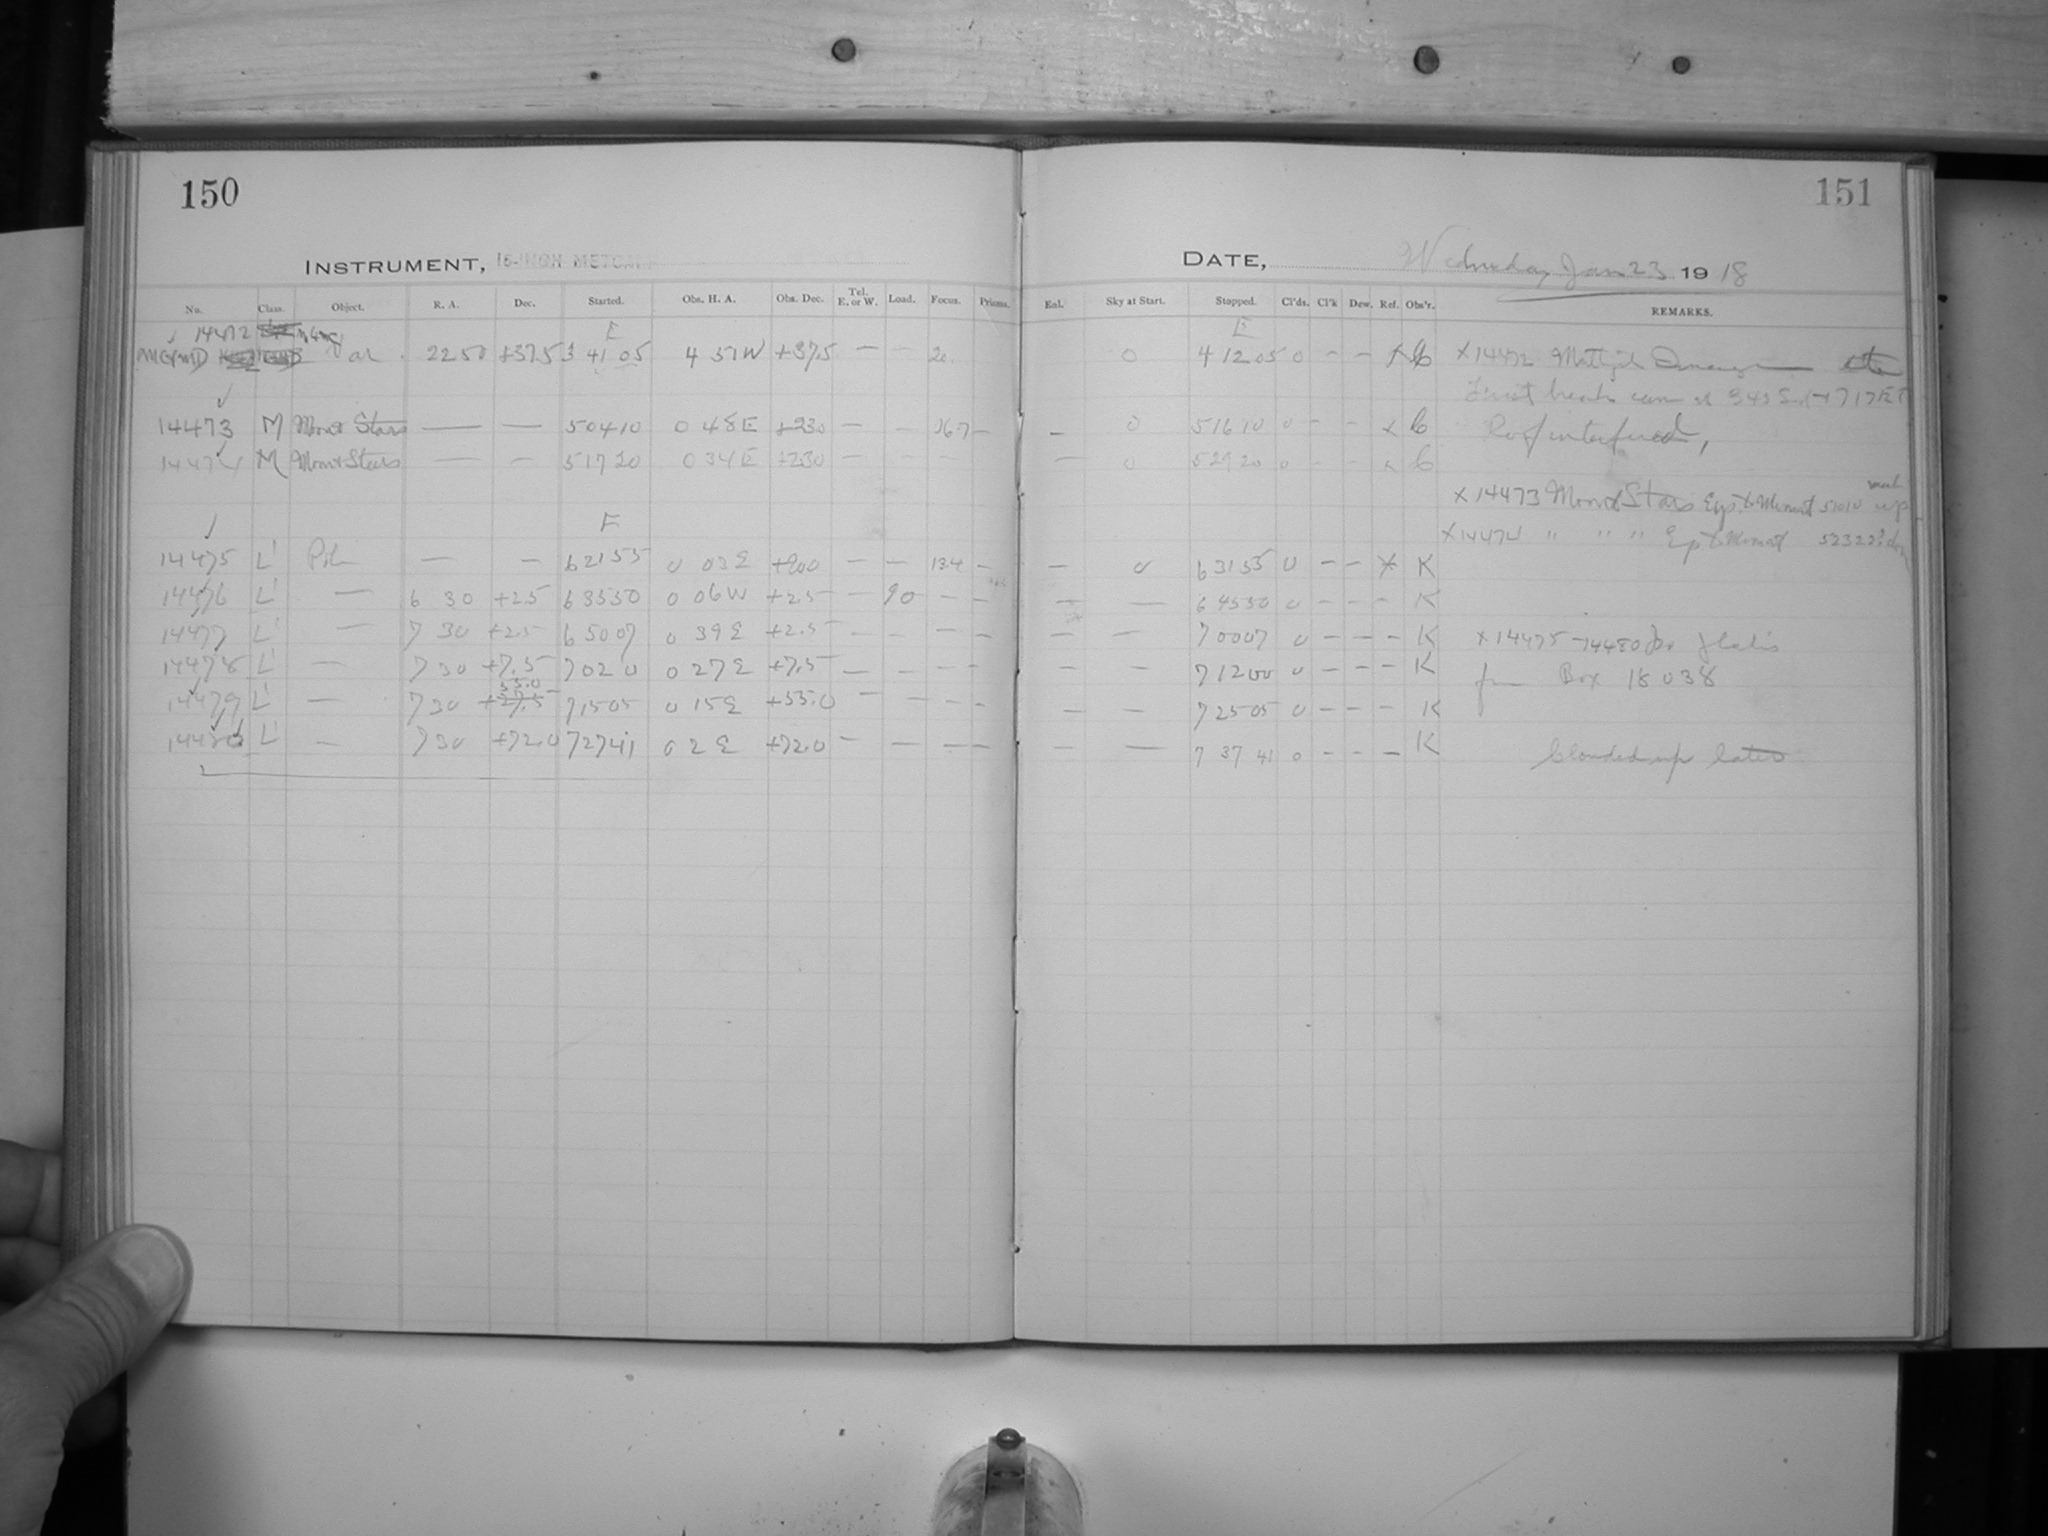 150
151
INSTRUMENT, 16-INCH METCALF
DATE, Wednesday Jan 23 1918
No. Class. Object. R. A. Dec. Started. Obs. H. A. Obs. Dec. Tel. E. or W. Load. Focus. Prisms. Exl. Sky at Start. Stopped. Cl'ds. Cl'k Dew. Ref. Obs'r. REMARKS.
14472 E E
Var 22 50 +37.5 3 41 05 4 51 W +37.5 — — 20 0 4 12 05 0 — — X 14472 Multiple
First
14473 M Moon & Stars — — 5 04 10 0 48 E +23.0 — — 167 — — 0 5 16 10 0 — — x Roof interfered,
14474 M Moon & Stars — — 5 17 20 0 34 E +23.0 — — — — 0 5 29 20 0 — — x
X 14473 Moon & Stars 51010 up
X 14474 " " "
E
14475 L' Pole — — 6 21 55 0 03 E +90.0 — — 134 — — 0 6 31 55 0 — — X K
14476 L' — 6 30 +2.5 6 35 30 0 06 W +2.5 — 90 — — — — 6 45 30 0 — — — K
14477 L' — 7 30 +2.5 6 50 07 0 39 E +2.5 — — — — — — 7 00 07 0 — — — K X 14475-14480 for
14478 L' — 7 30 +7.5 7 02 0 0 27 E +7.5 — — — — — — 7 12 00 0 — — — K from Box 18038
55.0
14479 L' — 7 30 +27.5 7 15 05 0 15 E +55.0 — — — — — — 7 25 05 0 — — — K
14480 L' — 7 30 +72.0 7 27 41 0 2 E +72.0 — — — — — — 7 37 41 0 — — — K Clouded up later